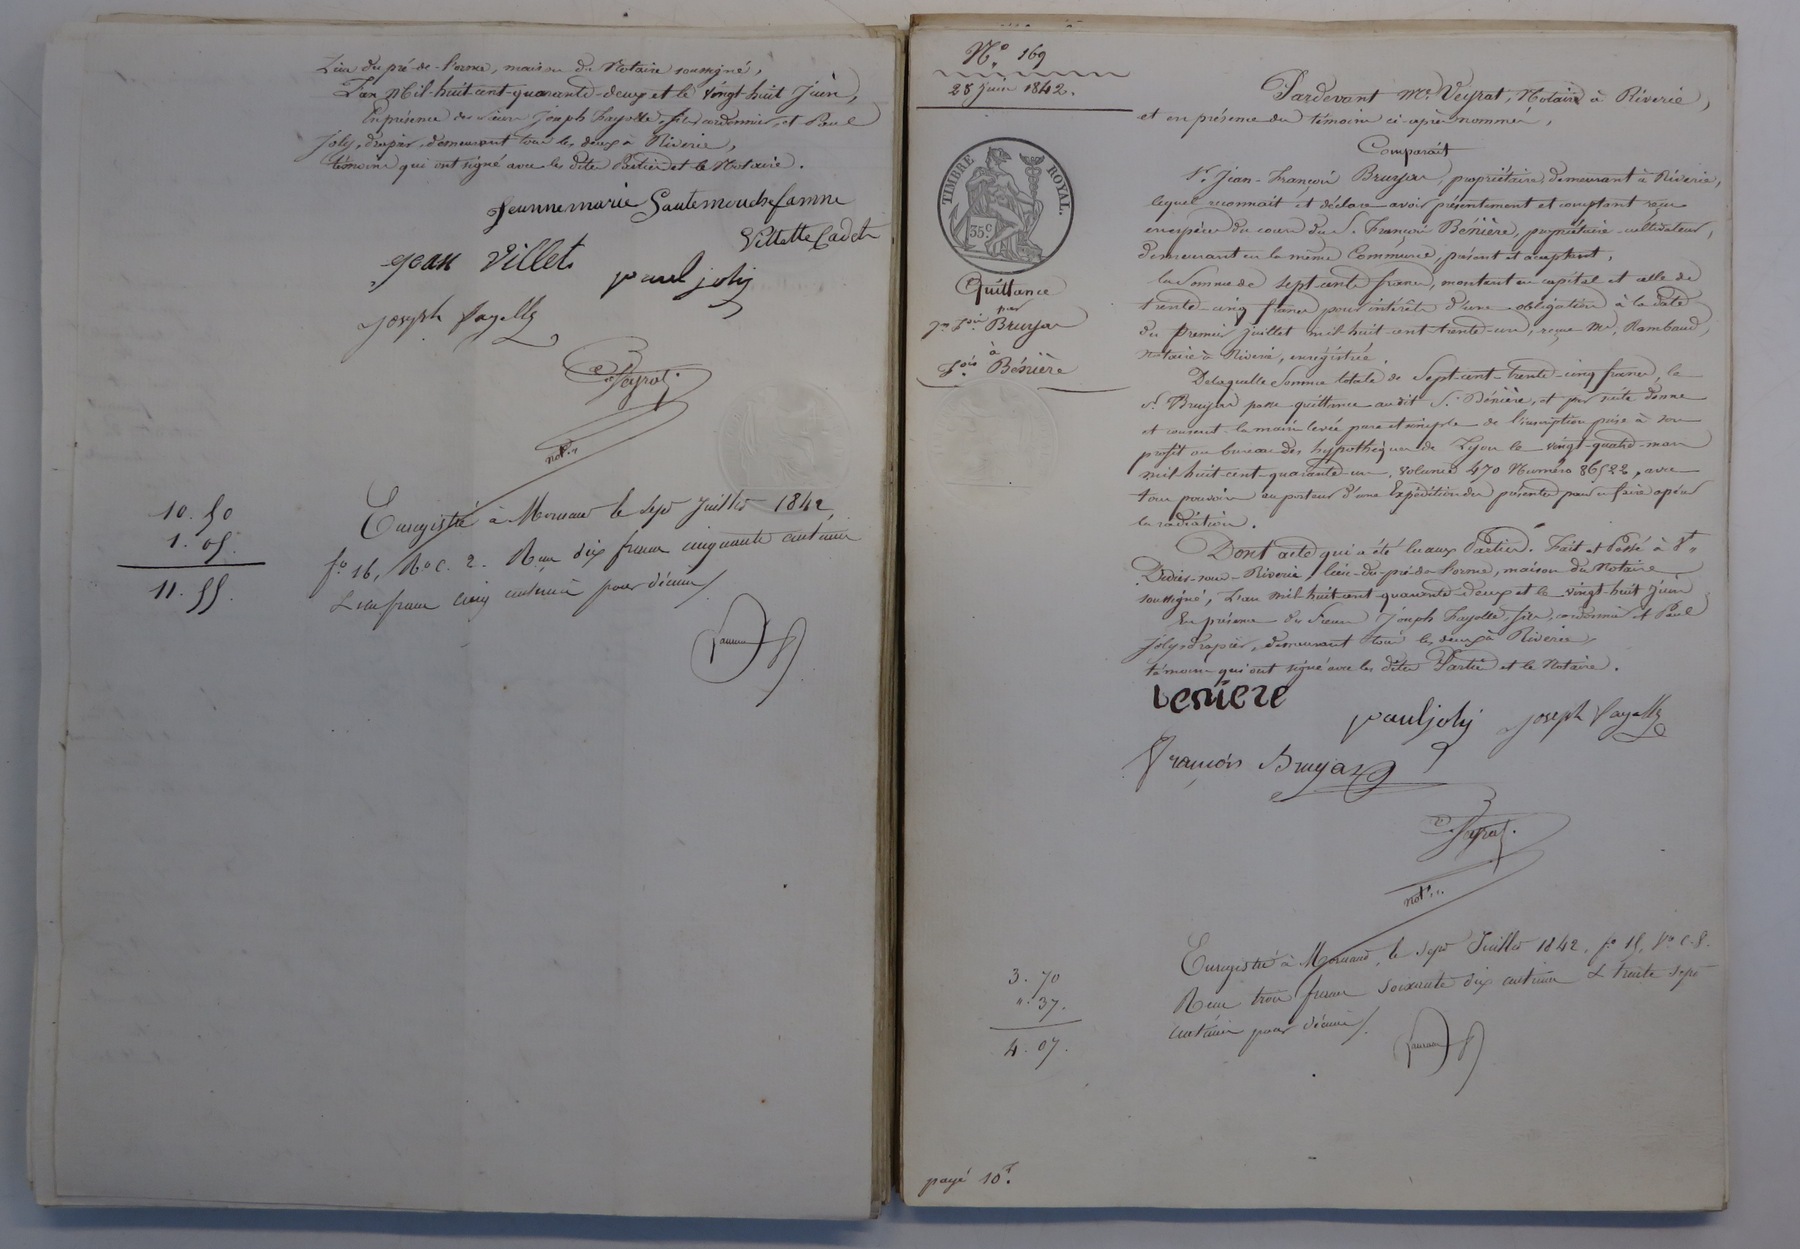 Lieu du pré-de-l'orme, maison du Notaire soussigné,
L'an Mil-huit-cent-quarante-deux et le vingt-huit Juin,
En présence des sieurs Joseph Fayolle, fils cordonnier, et Paul
Joly, drapier, demeurant tous les deux à Riverie,
témoins qui ont signé avec les dites Parties et le Notaire.
Jeunnemarie famme
Villette Cadet
jean Villet
paul joly
joseph fayolle
Veyrat
not.re
10. 50
1. 05.
11. 55.
Enregistré à Mornant le sept Juillet 1842,
fo 16, Ro C. 2. Reçu dix francs cinquante centimes
& un franc cinq centimes pour décime
No 169
28 Juin 1842.
TIMBRE ROYAL.
35 c.
Quittance
par
Jn. Fois. Bruyas
à
Fois. Bénière
Pardevant Me. Veyrat, Notaire à Riverie,
et en présence des témoins ci-après nommés,
Comparaît
Sr. Jean-François Bruyas, propriétaire, demeurant à Riverie,
lequel reconnait et déclare avoir présentement et comptant reçu
en espèces du cours du S. François Bénière, propriétaire-cultivateur,
demeurant en la même Commune, présent et acceptant,
la somme de sept-cents francs, montant en capital et celle de
trente-cinq francs pour intérêts d'une obligation à la date
du premier juillet mil-huit-cent-trente-un, reçue Me. Rambaud,
notaire à Riverie, enregistrée.
De laquelle somme totale de Sept-cent-trente-cinq francs, le
Sr. Bruyas passe quittance audit S. Bénière, et par suite donne
et consent la main levée pure et simple de l'inscription prise à son
profit au bureau des hypothèques de Lyon le vingt-quatre-mars
mil-huit-cent-quarante-un, volume 470 Numéro 86522, avec
tous pouvoirs au porteur d'une Expédition des présentes pour en faire opérer
la radiation.
Dont acte qui a été lu aux Parties. Fait et Passé à St.
Didier-sous-Riverie, lieu-du-pré-de-l'orme, maison du Notaire
soussigné, L'an mil-huit-cent-quarante-deux et le vingt-huit Juin
En présence des sieurs Joseph Fayolle, fils, cordonnier et Paul
Joly, drapier, demeurant tous les deux à Riverie,
témoins qui ont signé avec les dites Parties et le Notaire.
beniere
paul joly joseph fayolle
François Bruyas
Veyrat
not.re
3. 70
". 37.
4. 07.
Enregistré à Mornant, le sept Juillet 1842, fo 15, Vo C. 8.
Reçu trois francs soixante dix centimes & trente sept
centimes pour décime
payé 10f.